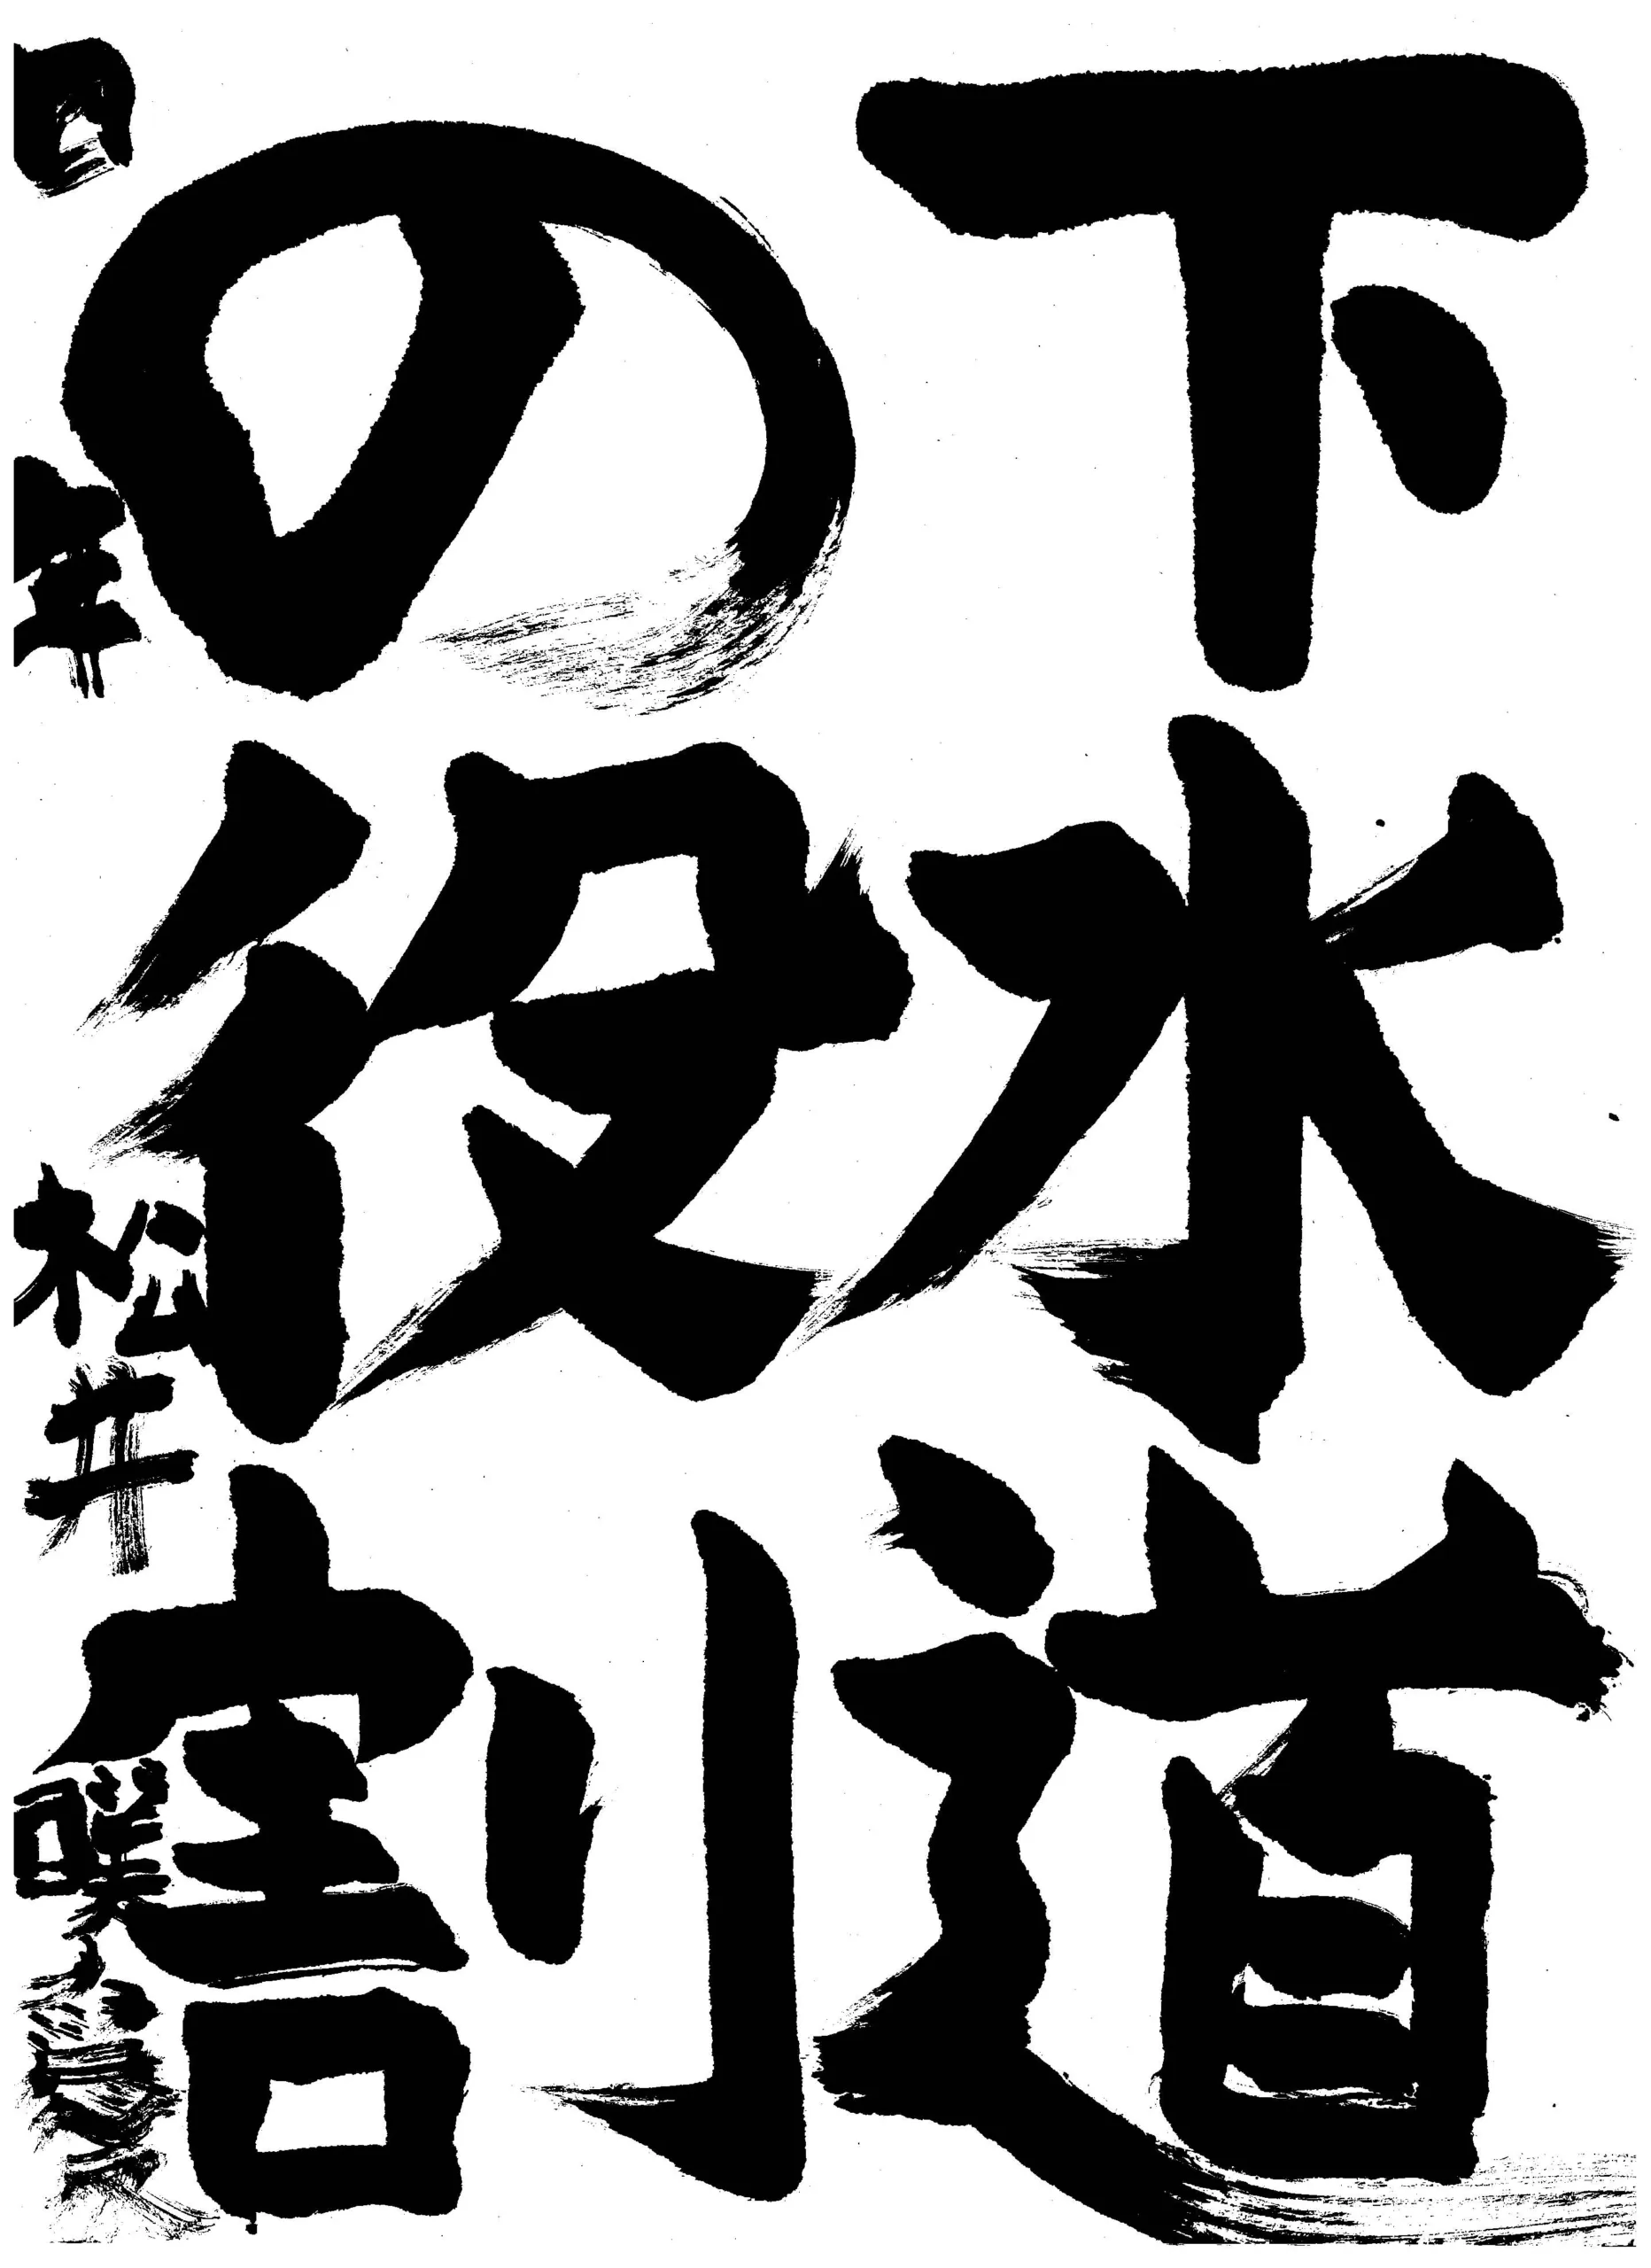 下水道
の役割
四年 松井